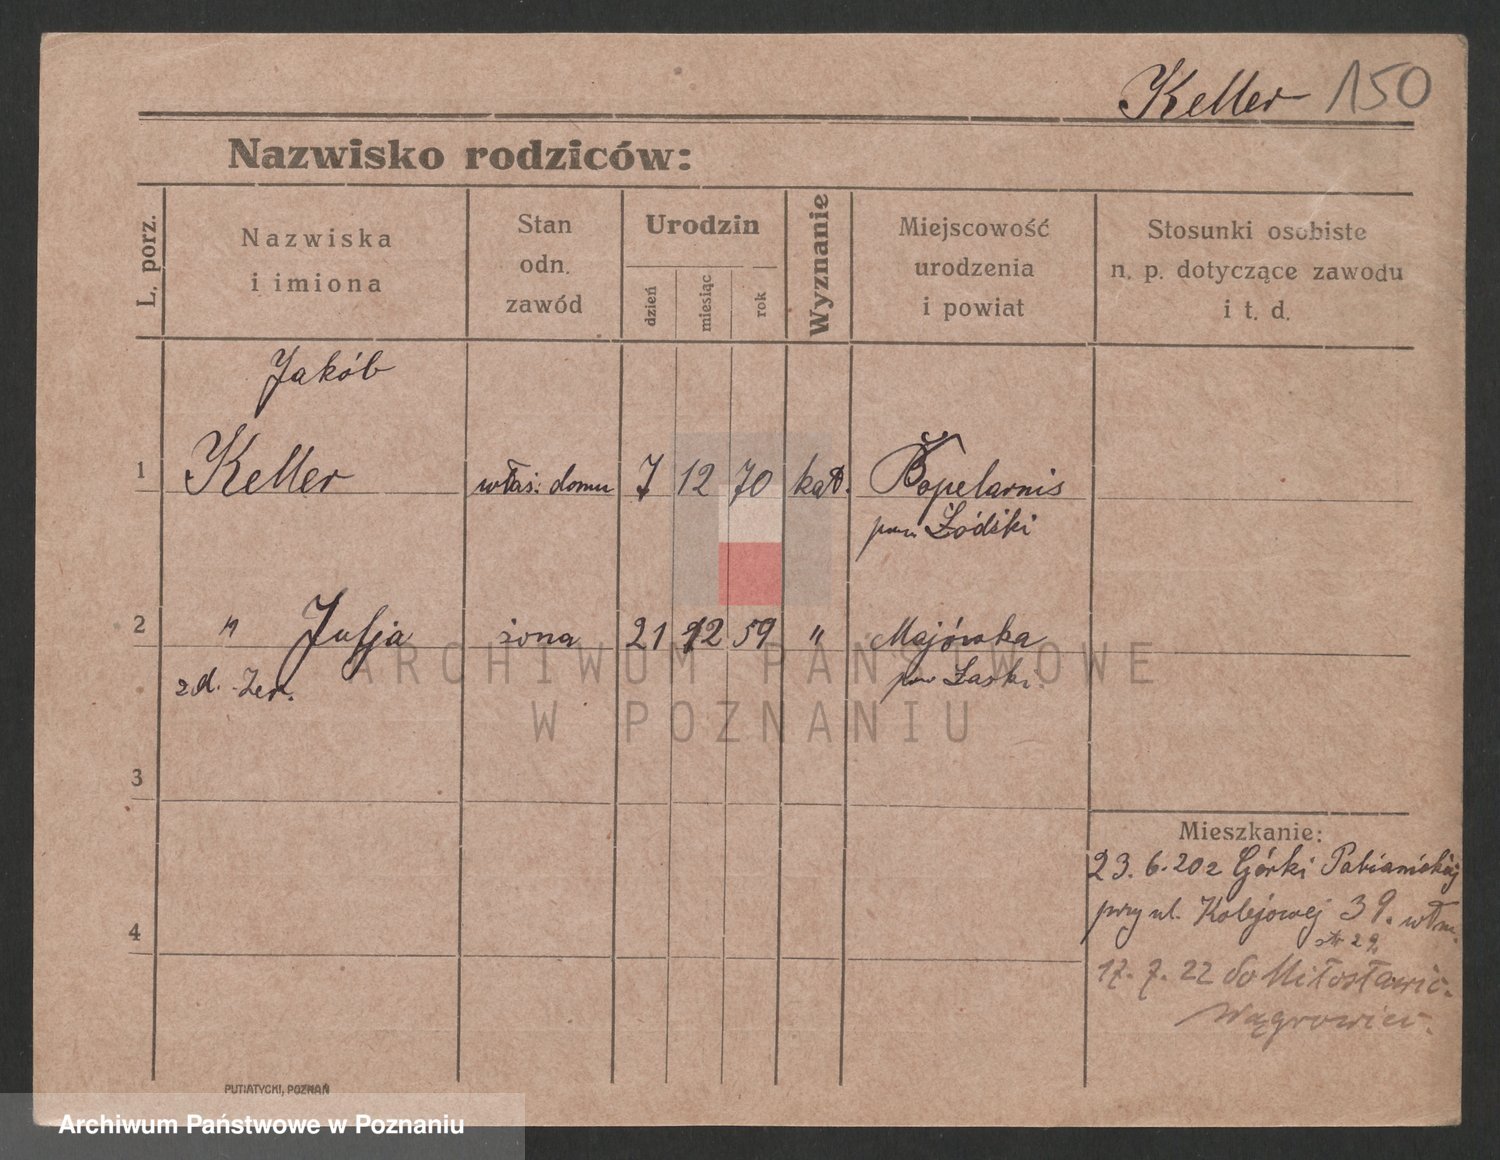 Keller 150
Nazwisko rodziców:
L. porz.
Nazwiska
i imiona
Stan
odn.
zawód
Urodzin
dzień
miesiąc
rok
Wyznanie
Miejscowość
urodzenia
i powiat
Stosunki osobiste
n. p. dotyczące zawodu
i t. d.
Jakób
1 Keller właś: domu 7 12 70 kat.
pow Łódźki
2 " Julja żona 21 12 59 " Majówka
pow Łaski.
3
4
Mieszkanie:
23.6.20 z Górki Pabianickiej
przy ul. Kolejowej 39.
17.7.22 do Miłosławic.
Wągrowiec.
PUTIATYCKI, POZNAŃ
ARCHIWUM PAŃSTWOWE
W POZNANIU
Archiwum Państwowe w Poznaniu